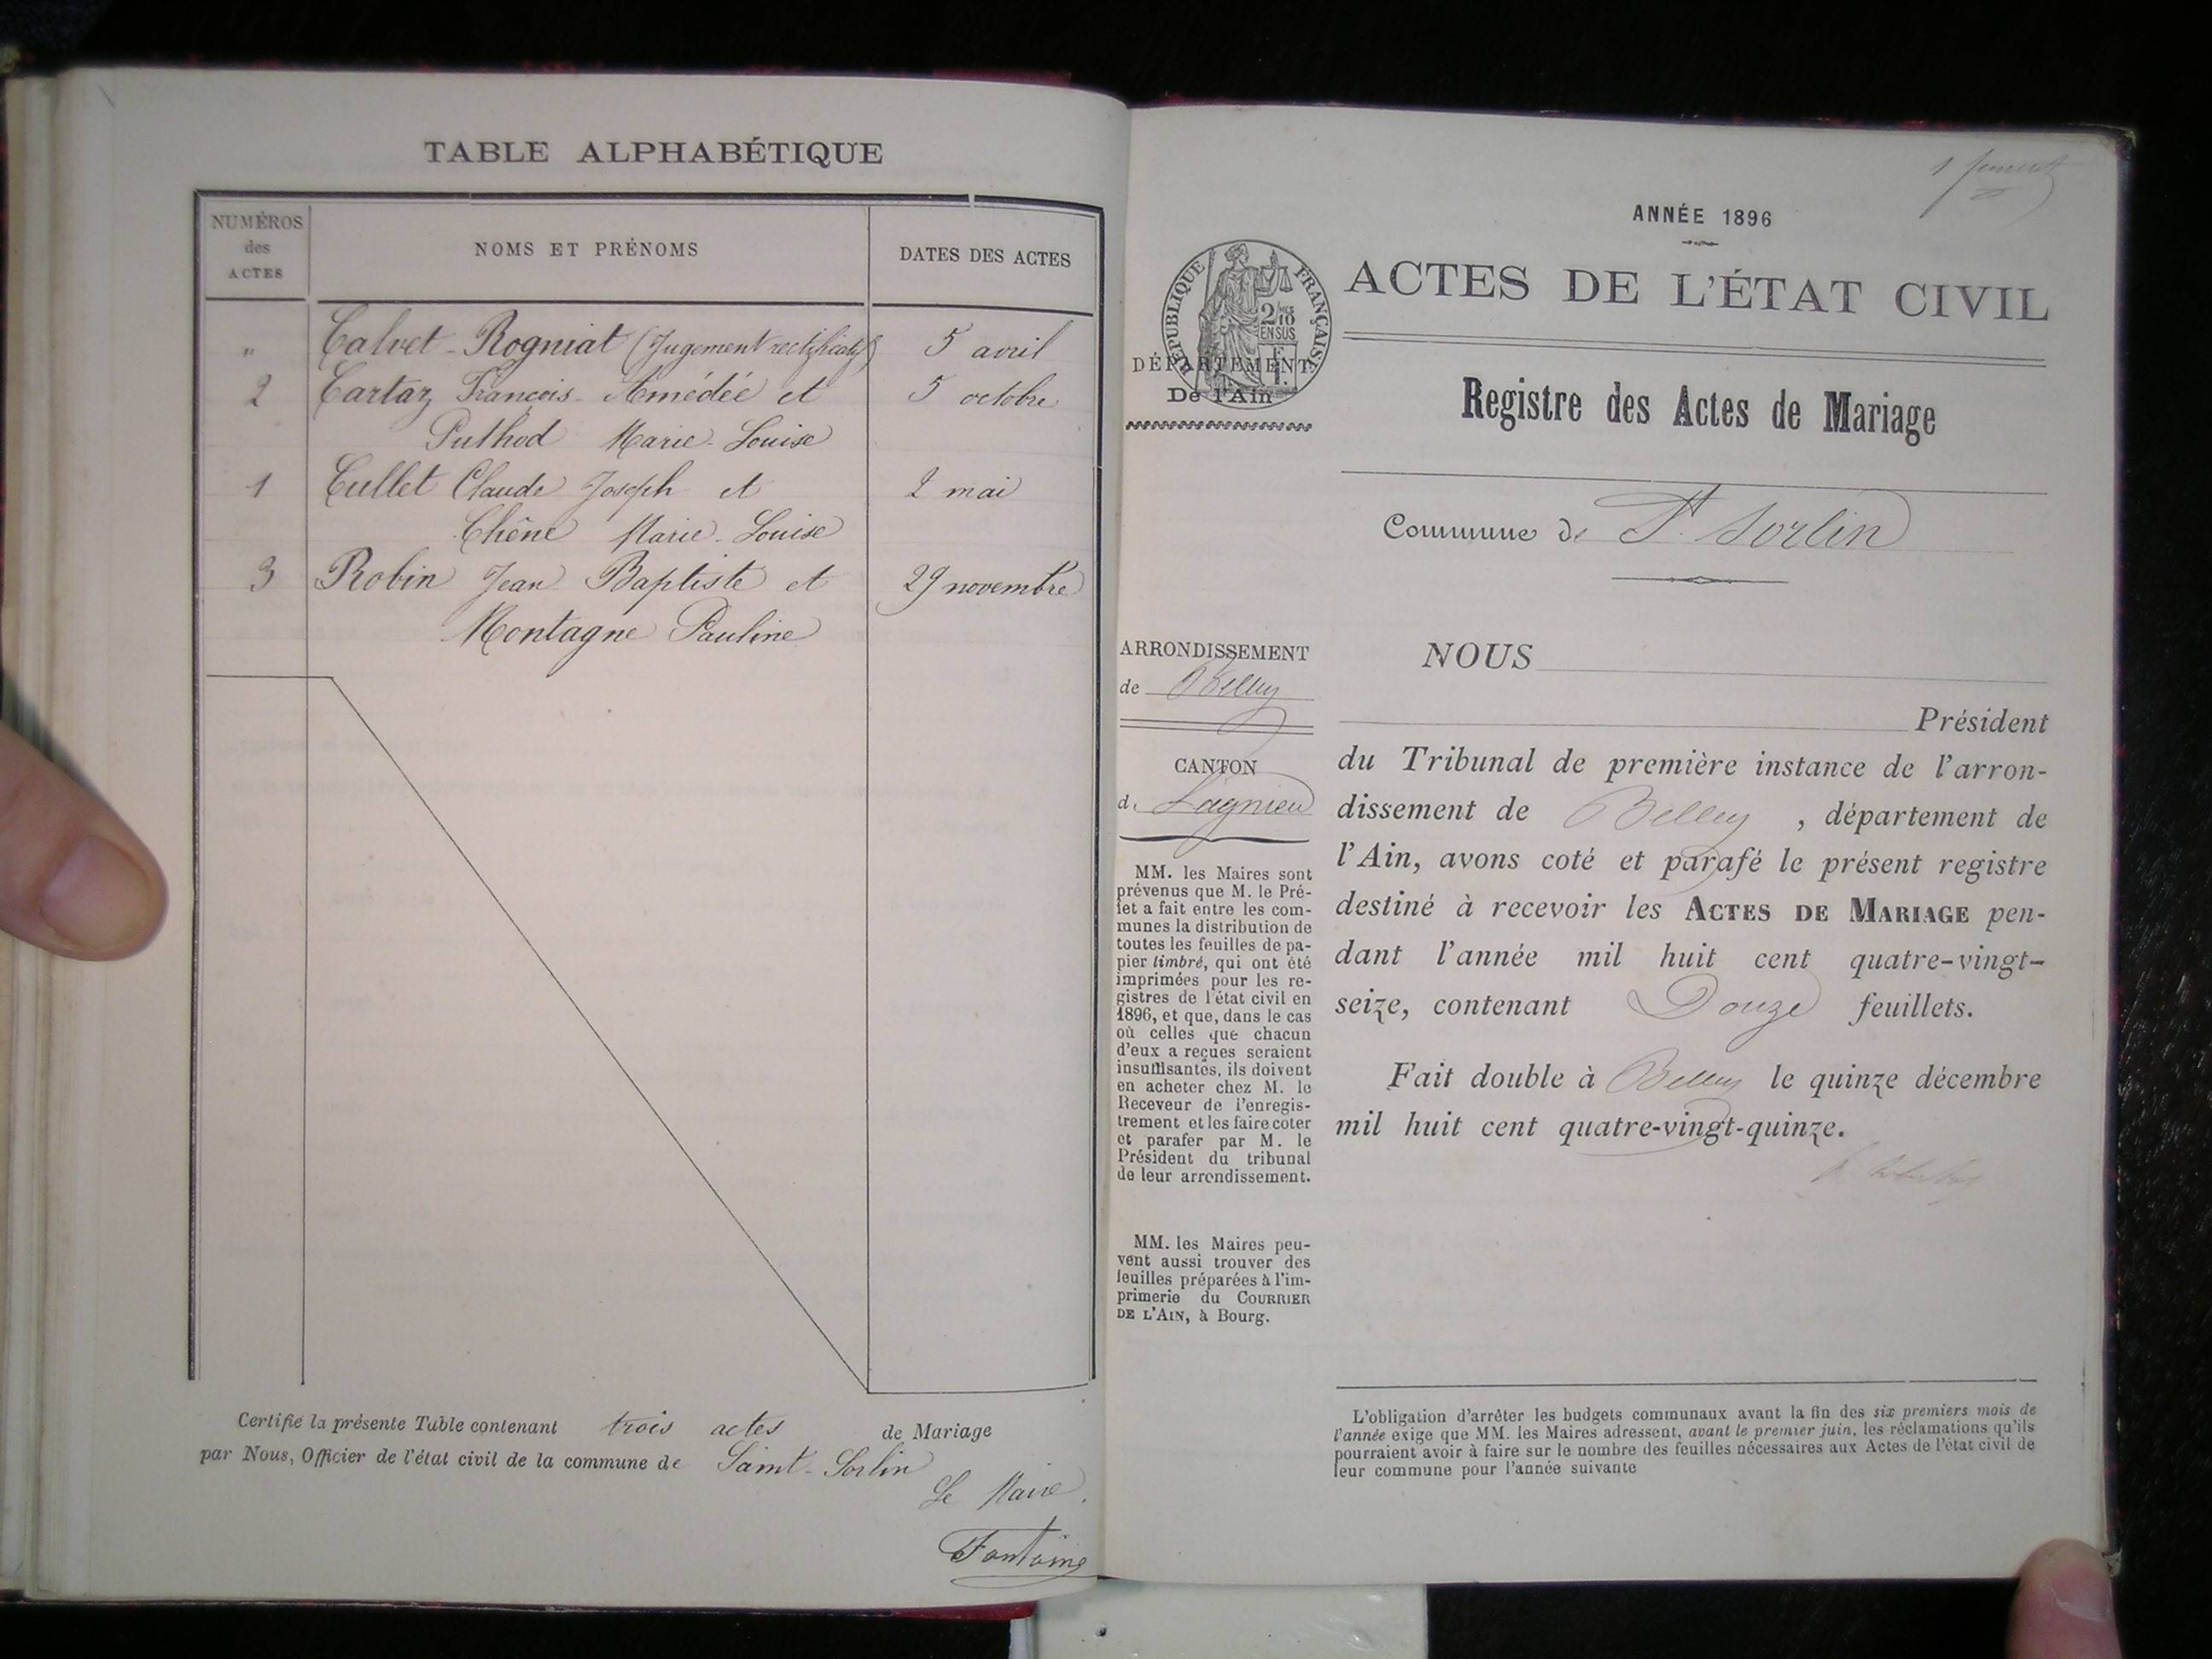 TABLE ALPHABÉTIQUE
NUMÉROS
des
ACTES
NOMS ET PRÉNOMS
DATES DES ACTES
" Calvet-Rogniat (Jugement rectificatif) 5 avril
2 Cartaz François-Amédée et 5 octobre
Puthod Marie-Louise
1 Cullet Claude Joseph et 2 mai
Chêne Marie-Louise
3 Robin Jean Baptiste et 29 novembre
Montagne Pauline
Certifié la présente Table contenant trois actes de Mariage
par Nous, Officier de l'état civil de la commune de Saint-Sorlin
Le Maire.
Fontaine
1
ANNÉE 1896
RÉPUBLIQUE FRANÇAISE
2/10 MES
EN SUS
ACTES DE L'ÉTAT CIVIL
DÉPARTEMENT
De l'Ain
Registre des Actes de Mariage
Commune de St Sorlin
ARRONDISSEMENT
de Belley
CANTON
de Lagnieu
MM. les Maires sont
prévenus que M. le Pré-
fet a fait entre les com-
munes la distribution de
toutes les feuilles de pa-
pier timbré, qui ont été
imprimées pour les re-
gistres de l'état civil en
1896, et que, dans le cas
où celles que chacun
d'eux a reçues seraient
insuffisantes, ils doivent
en acheter chez M. le
Receveur de l'enregis-
trement et les faire coter
et parafer par M. le
Président du tribunal
de leur arrondissement.
MM. les Maires peu-
vent aussi trouver des
feuilles préparées à l'im-
primerie du COURRIER
DE L'AIN, à Bourg.
NOUS
Président
du Tribunal de première instance de l'arron-
dissement de Belley, département de
l'Ain, avons coté et parafé le présent registre
destiné à recevoir les ACTES DE MARIAGE pen-
dant l'année mil huit cent quatre-vingt-
seize, contenant Douze feuillets.
Fait double à Belley le quinze décembre
mil huit cent quatre-vingt-quinze.
L'obligation d'arrêter les budgets communaux avant la fin des six premiers mois de
l'année exige que MM. les Maires adressent, avant le premier juin, les réclamations qu'ils
pourraient avoir à faire sur le nombre des feuilles nécessaires aux Actes de l'état civil de
leur commune pour l'année suivante